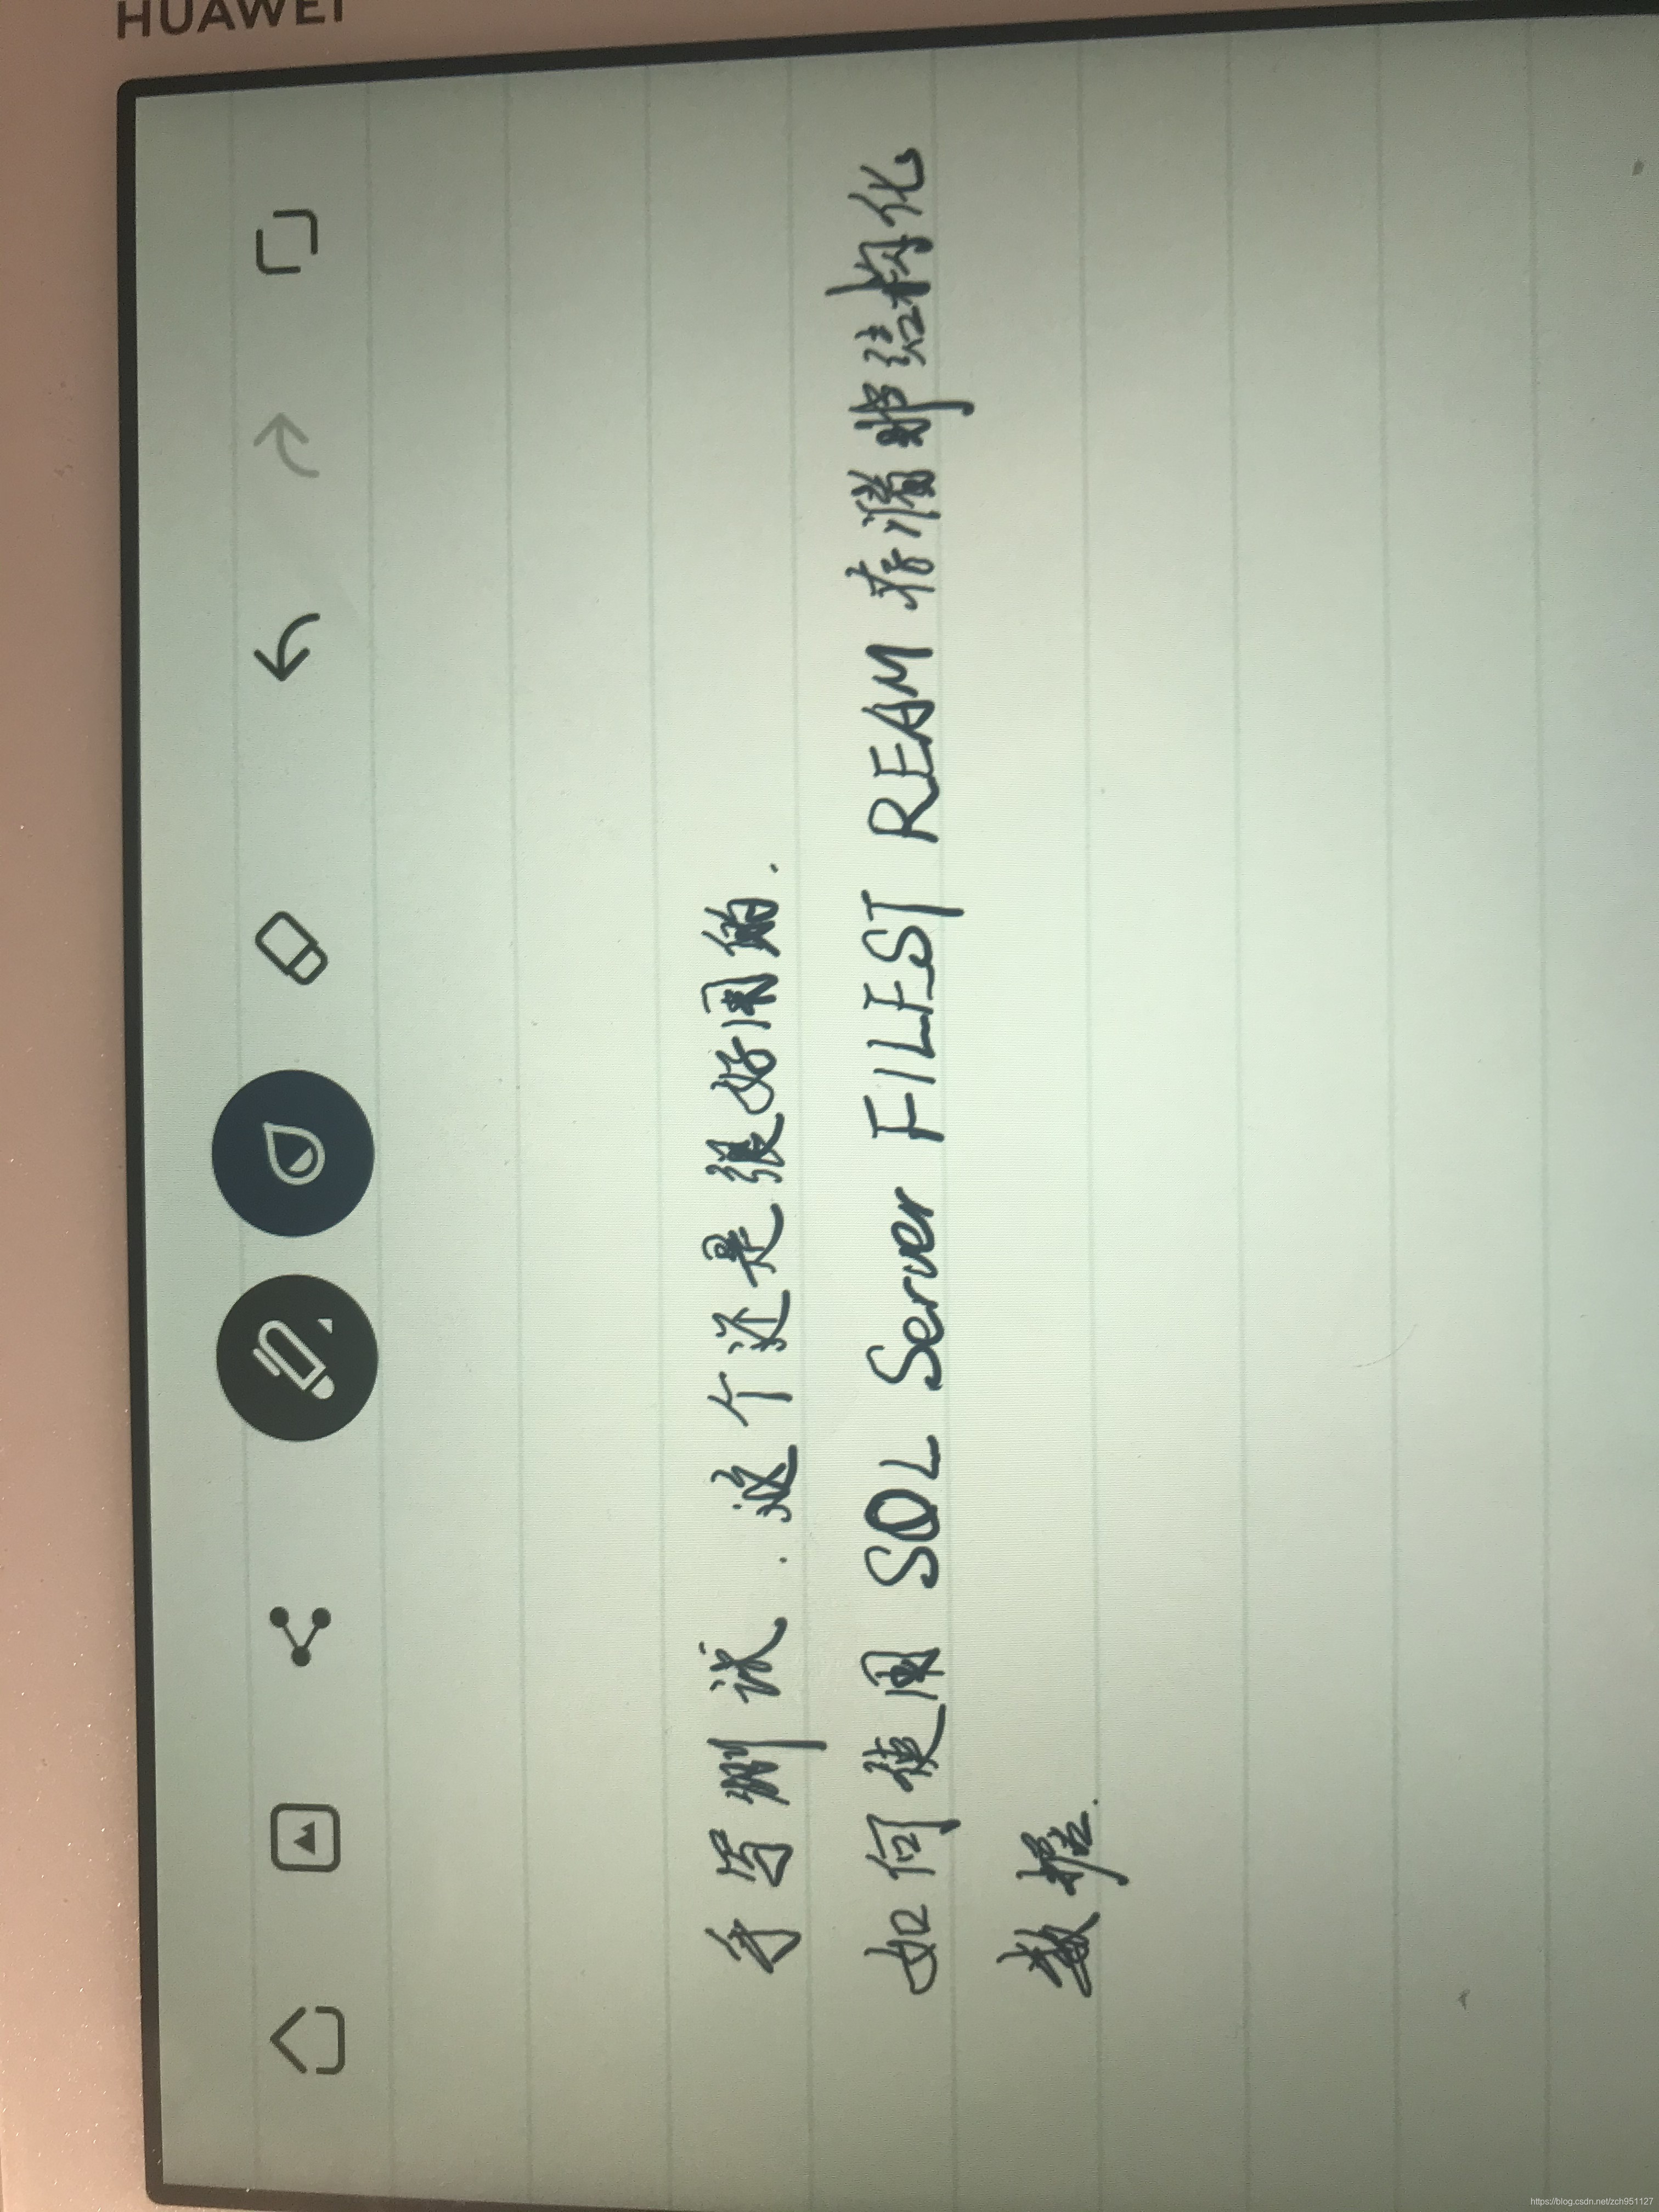 HUAWEI
手写测试.这个还是很好用的.
如何使用 SQL Server FILEST REAM 存储非结构化
数据.
https://blog.csdn.net/zch951127